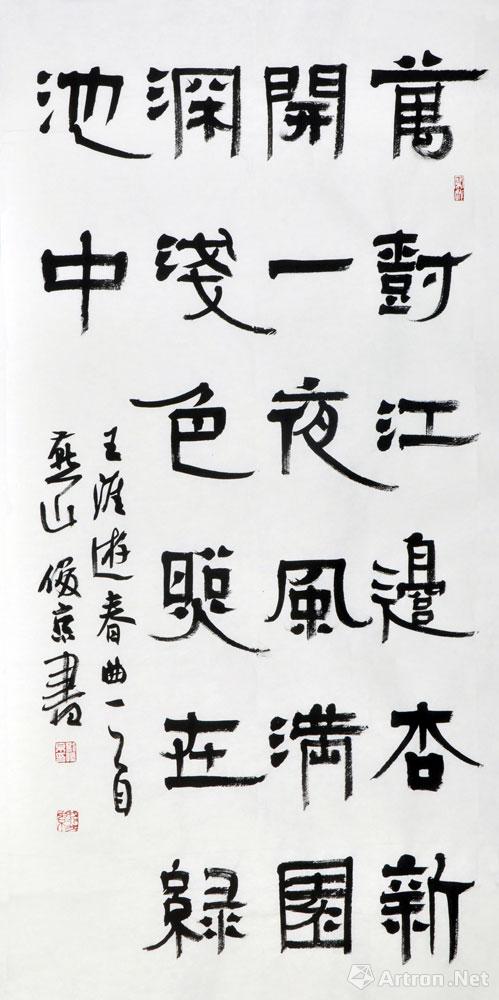 萬尌江邊杏新
開一夜風滿園
深淺色照在綠
池中
王涯遊春曲一首
燕山俊京書
Artron.Net